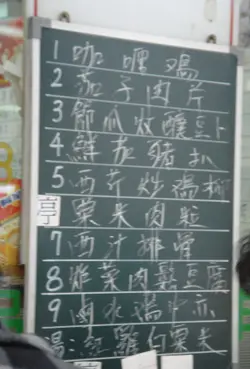 1 咖喱鸡
2 茄子肉片
3 節瓜炆釀豆卜
4 鮮茄豬扒
5 西芹炒鸡柳
亭 粟米肉粒
7 西汁排骨
8 炸菜肉鬆豆腐
9 鹵水鸡中亦
湯:紅蘿白粟米